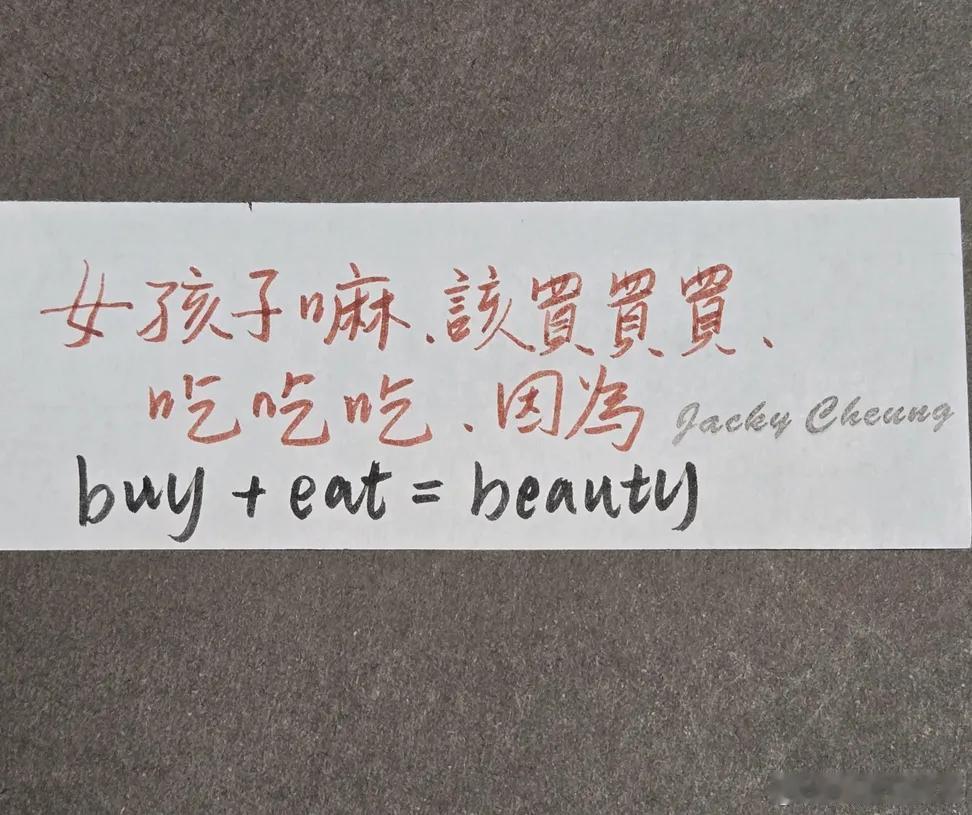 女孩子嘛、該買買買、
吃吃吃、因為
Jacky Cheung
buy + eat = beauty